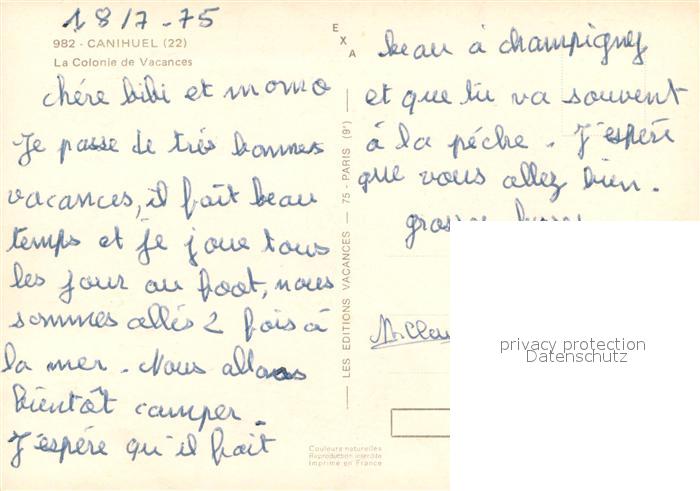 18/7-75
982 - CANIHUEL (22)
La Colonie de Vacances
chére bibi et momo
Je passe de trés bonnes
vacances, il fait beau
temps et je joue tous
les jour au foot, nous
sommes allés 2 fois á
la mer. Nous allons
bientôt camper.
J'espére qu'il fait
EXA
LES EDITIONS VACANCES — 75 - PARIS (9e)
Couleurs naturelles
Reproduction interdite
Imprimé en France
beau á champigny
et que tu va souvent
á la péche. J'espére
que vous allez bien.
grosse
privacy protection
Datenschutz